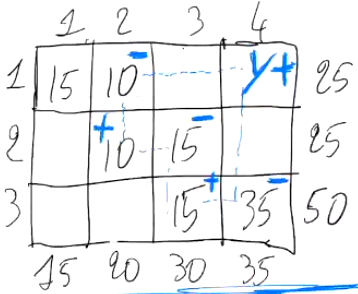 1 2 3 4
1 15 10 - y + 25
2 + 10 15 - 25
3 15 + 35 - 50
15 20 30 35